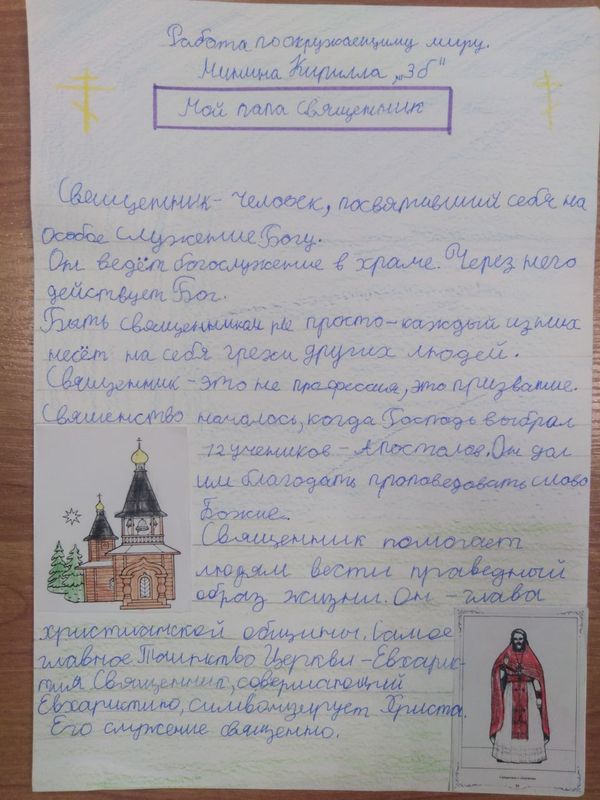 Работа по окружающему миру.
Минина Кирилла „3б“
Мой папа священник
Священник - человек, посвятивший себя на
особое служение Богу.
Он ведёт богослужение в храме. Через него
действует Бог.
Быть священником не просто - каждый из них
несёт на себя грехи других людей.
Священник - это не профессия, это призвание.
Священство началось, когда Господь выбрал
12 учеников - Апостолов. Он дал
им благодать проповедовать слово
Божие.
Священник помогает
людям вести праведный
образ жизни. Он - глава
христианской общины. Самое
главное Таинство Церкви - Евхарис-
тия Священник, совершающий
Евхаристию, символизирует Христа.
Его служение священно.